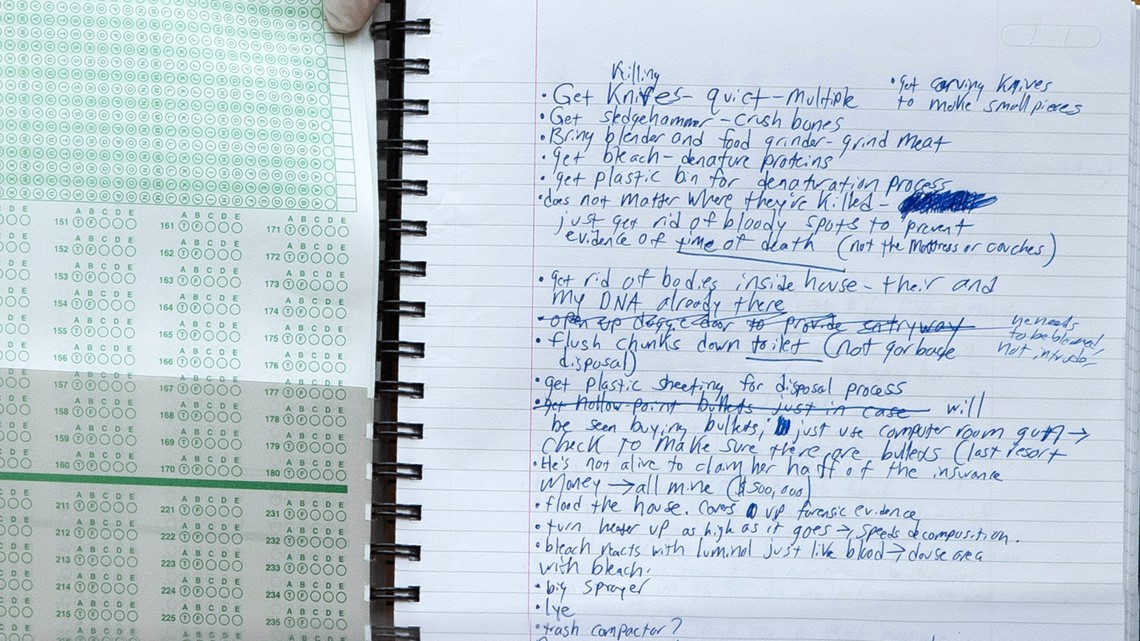 A B C D E
151 T F
161 T F
171 T F
152 T F
162 T F
172 T F
153 T F
163 T F
173 T F
154 T F
164 T F
174 T F
155 T F
165 T F
175 T F
156 T F
166 T F
176 T F
157 T F
167 T F
177 T F
158 T F
168 T F
178 T F
159 T F
169 T F
179 T F
160 T F
170 T F
180 T F
211 T F
221 T F
231 T F
212 T F
222 T F
232 T F
213 T F
223 T F
233 T F
214 T F
224 T F
234 T F
215 T F
225 T F
235 T F
Killing
• Get Knifes - quiet - multiple
• get carving knives
to make small pieces
• Get sledgehammer - crush bones
• Bring blender and food grinder - grind meat
• get bleach - denature proteins
• get plastic bin for denaturation process
• does not matter where they're killed -
just get rid of bloody spots to prevent
evidence of time of death (not the mattress or couches)
• get rid of bodies inside house - their and
my DNA already there
• open up doggie door to provide entryway
he needs
to be blamed,
not intruder
• flush chunks down toilet (not garbage
disposal)
• get plastic sheeting for disposal process
• get hollow-point bullets just in case will
be seen buying bullets, just use computer room gun →
check to make sure there are bullets (last resort
• He's not alive to claim her half of the insurance
money → all mine ($500,000)
• flood the house. covers up forensic evidence
• turn heater up as high as it goes → speeds decomposition.
• bleach reacts with luminol just like blood → douse area
with bleach.
• big sprayer
• lye
• trash compactor?